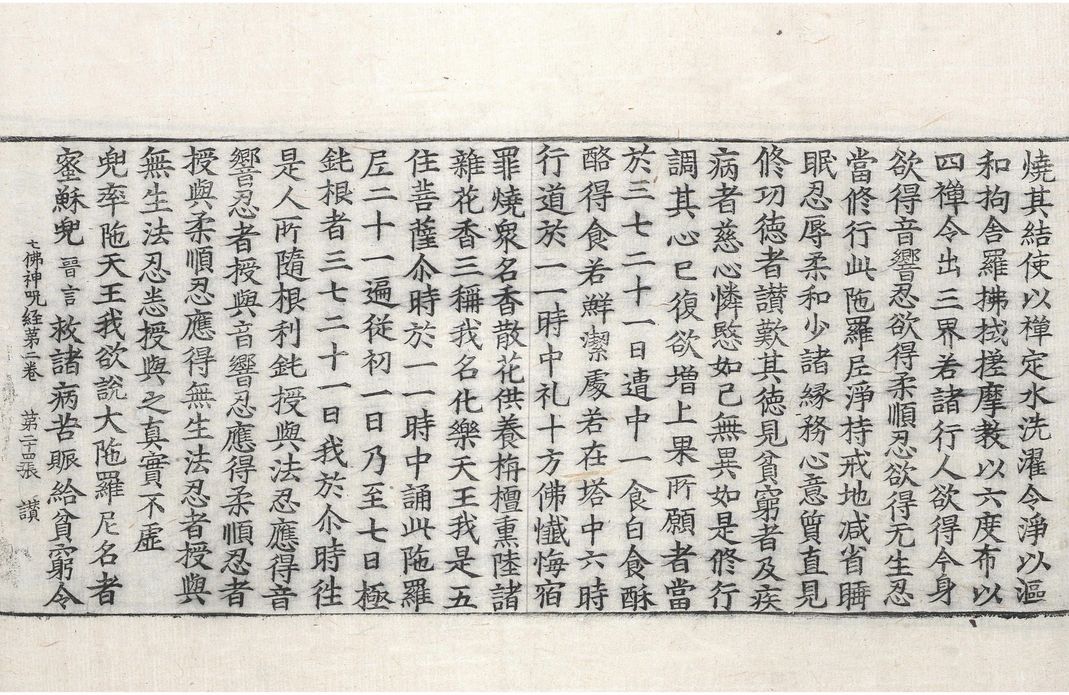 燒其結使以禪定水洗濯令淨以漚
和拘舍羅拂拭搓摩教以六度布以
四禪令出三界若諸行人欲得今身
欲得音響忍欲得柔順忍欲得无生忍
當修行此陁羅尼淨持戒地减省睡
眠忍辱柔和少諸縁務心意質直見
修功德者讃歎其德見貧窮者及疾
病者慈心憐愍如己無異如是修行
調其心已復欲增上果所願者當
於三七二十一日遣中一食白食酥
酪得食若鮮潔處若在塔中六時
行道於一一時中礼十方佛懺悔宿
罪燒衆名香散花供養栴檀熏陸諸
雜花香三稱我名化樂天王我是五
住菩薩尒時於一一時中誦此陁羅
尼二十一遍從初一日乃至七日極
鈍根者三七二十一日我於尒時往
是人所隨根利鈍授與法忍應得音
響忍者授與音響忍應得柔順忍者
授與柔順忍應得無生法忍者授與
無生法忍悉授與之真實不虛
兜率陁天王我欲說大陁羅尼名者
蜜穌兜 晉言救諸病苦賑給貧窮令
七佛神呪経第二卷 第二十四張 讃